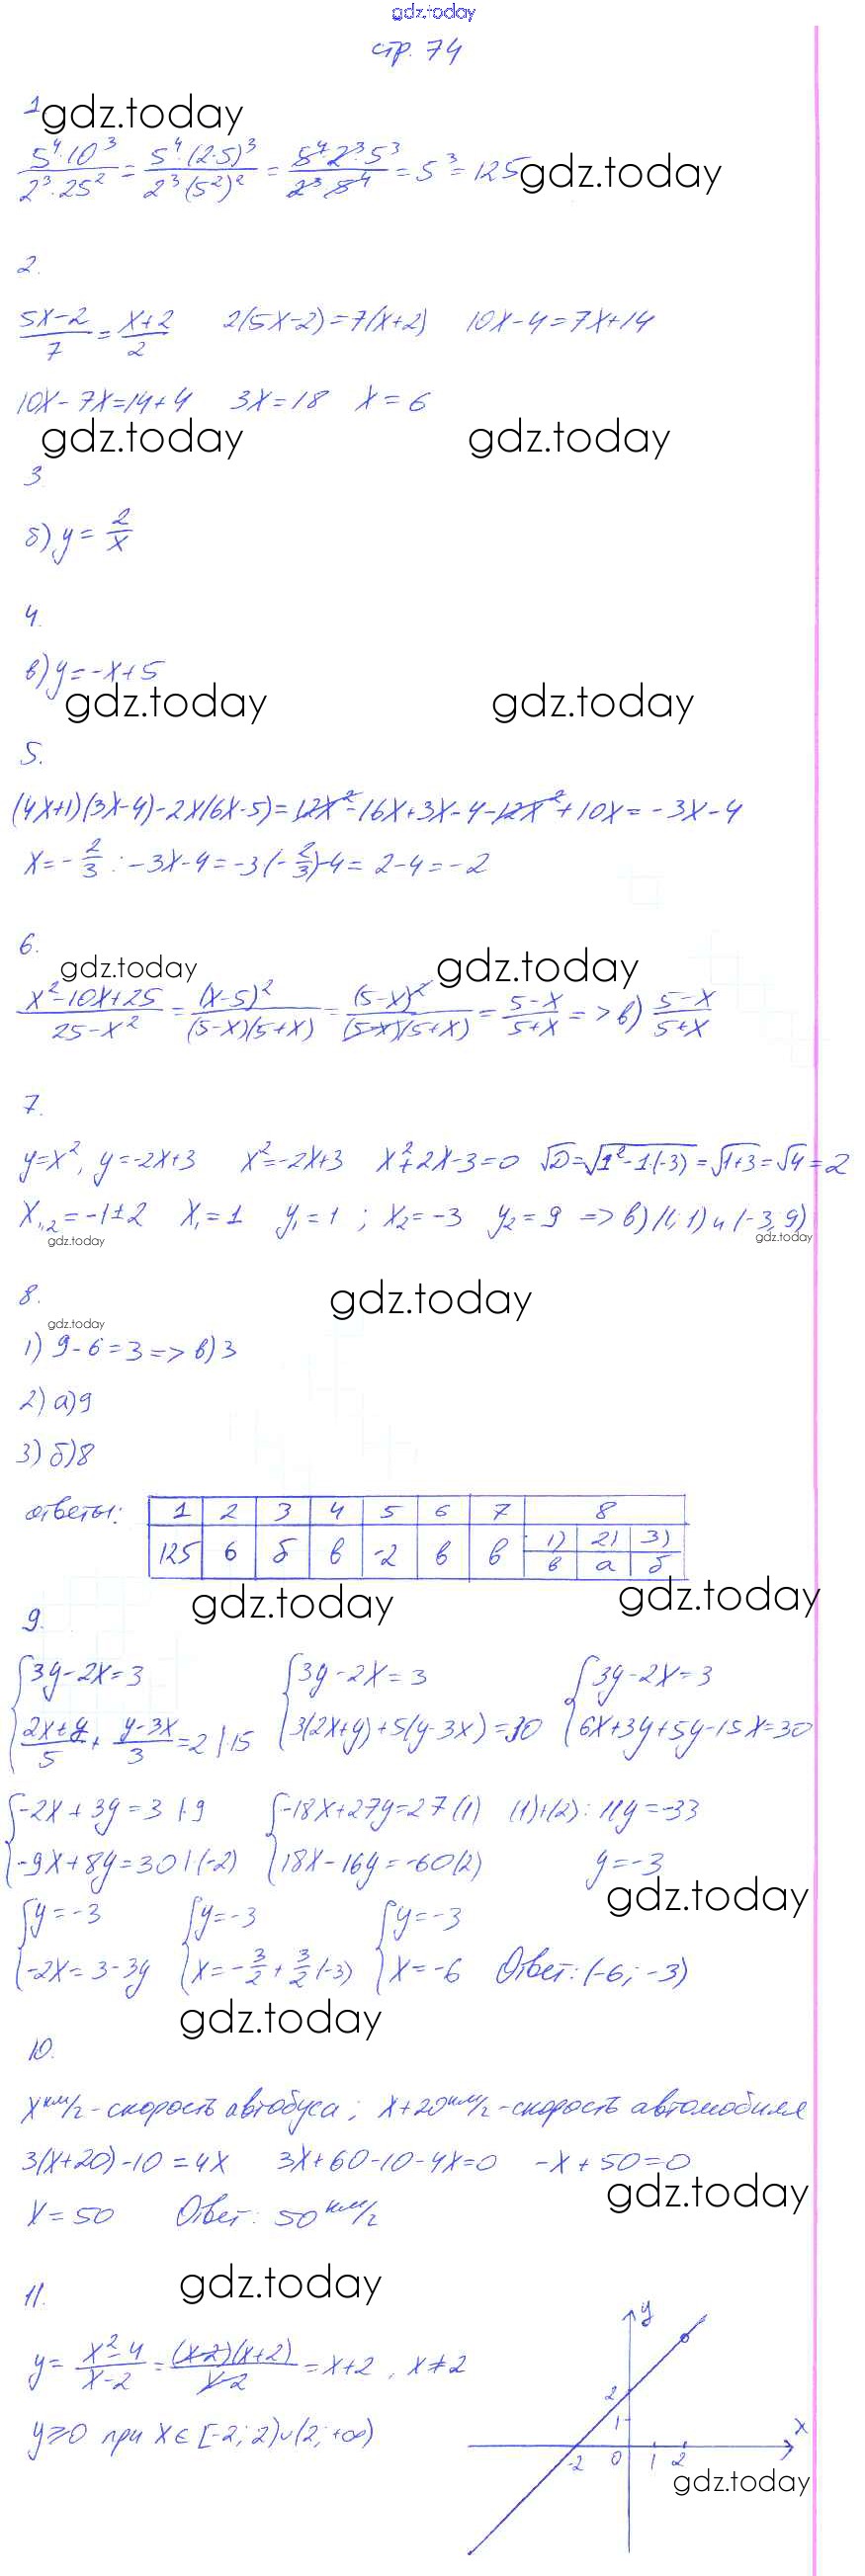 gdz.today
стр. 74
1 gdz.today
5⁴·10³/2³·25² = 5⁴·(2·5)³/2³(5²)² = 5⁴·2³·5³/2³·5⁴ = 5³ = 125 gdz.today
2.
5x-2/7 = x+2/2   2(5x-2)=7(x+2)   10x-4=7x+14
10x-7x=14+4   3x=18   x=6
gdz.today gdz.today
3
б) y = 2/x
4.
в) y=-x+5
gdz.today gdz.today
5.
(4x+1)(3x-4)-2x(6x-5)=12x²-16x+3x-4-12x²+10x=-3x-4
x=-2/3 : -3x-4=-3(-2/3)-4=2-4=-2
6.
gdz.today gdz.today
x²-10x+25/25-x² = (x-5)²/(5-x)(5+x) = (5-x)²/(5-x)(5+x) = 5-x/5+x => в) 5-x/5+x
7.
y=x², y=-2x+3   x²=-2x+3   x²+2x-3=0   √D=√1²-1·(-3)=√1+3=√4=2
x₁,₂=-1±2   x₁=1   y₁=1 ; x₂=-3   y₂=9 => в) (1; 1) и (-3; 9)
gdz.today gdz.today
8. gdz.today
gdz.today
1) 9-6=3 => в) 3
2) а) 9
3) б) 8
ответы: 1 2 3 4 5 6 7 8
125 6 б в -2 в в 1) 2) 3)
в а б
gdz.today gdz.today
9.
{3y-2x=3   {3y-2x=3   {3y-2x=3
{2x+y/5 + y-3x/3 = 2 |·15   {3(2x+y)+5(y-3x)=30   {6x+3y+5y-15x=30
{-2x+3y=3 |·9   {-18x+27y=27 (1)   (1)+(2): 11y=-33
{-9x+8y=30 |·(-2)   {18x-16y=-60 (2)   y=-3
gdz.today
{y=-3   {y=-3   {y=-3
{-2x=3-3y   {x=-3/2+3/2(-3)   {x=-6   Ответ: (-6; -3)
gdz.today
10.
x км/г - скорость автобуса; x+20 км/г - скорость автомобиля
3(x+20)-10=4x   3x+60-10-4x=0   -x+50=0
gdz.today
x=50   Ответ: 50 км/г
gdz.today
11.
y= x²-4/x-2 = (x-2)(x+2)/x-2 = x+2, x≠2
y≥0 при x∈[-2; 2)∪(2; +∞)
y
2
1
x
-2 0 1 2
gdz.today